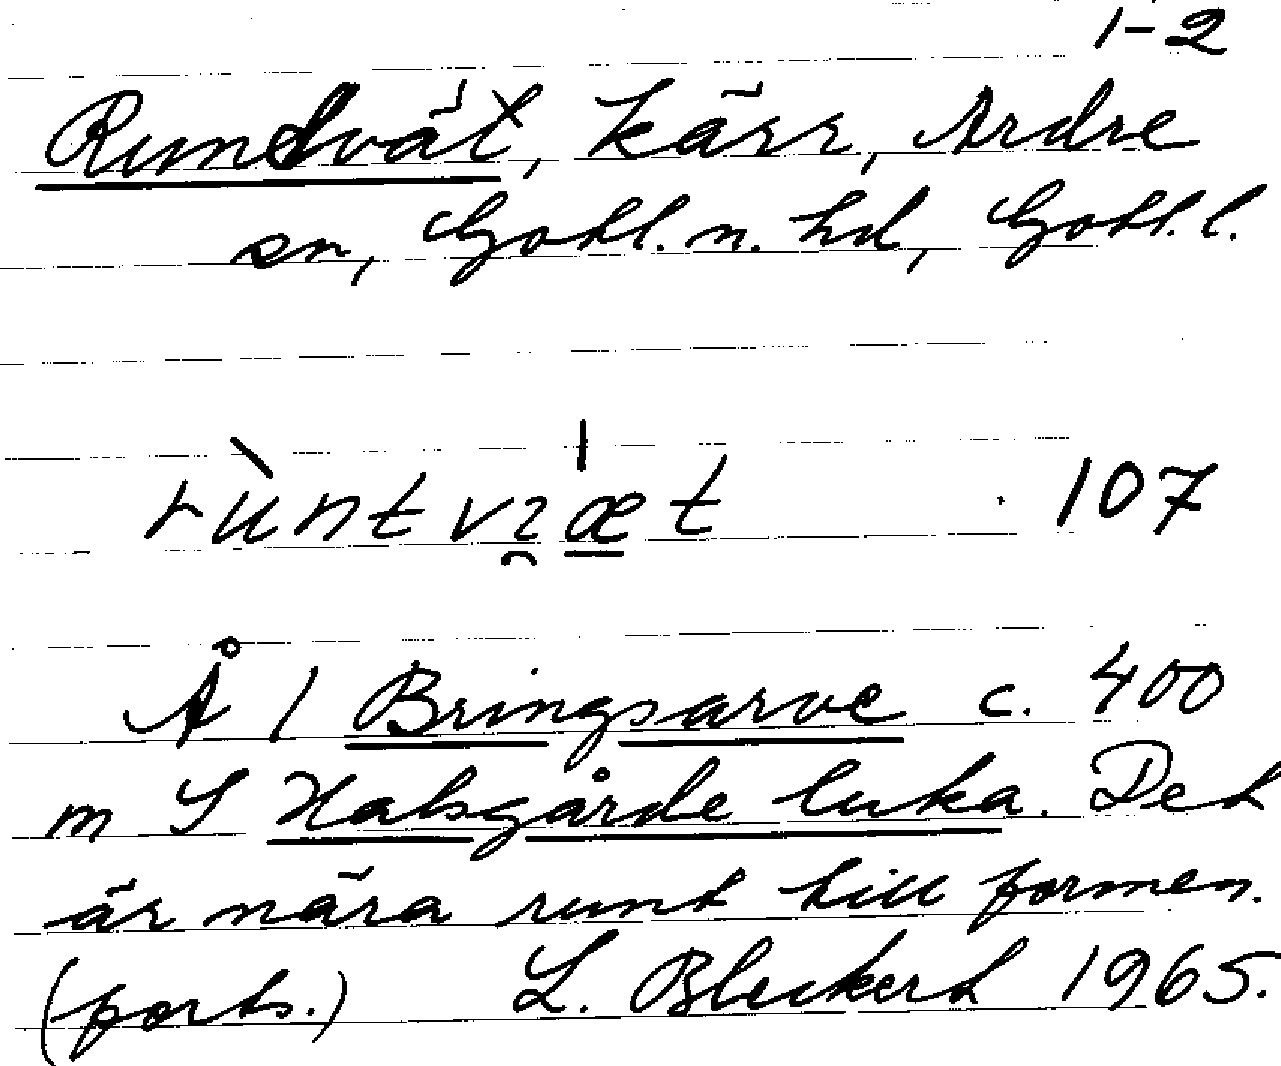 1-2
Rundvät, kärr, Ardre
sn, Gotl. n. hd, Gotl. l.
rùntvɿæt 107
Å / Bringsarve c. 400
m S Halsgårde luka. Det
är nära runt till formen.
(forts.) L. Bleckert 1965.